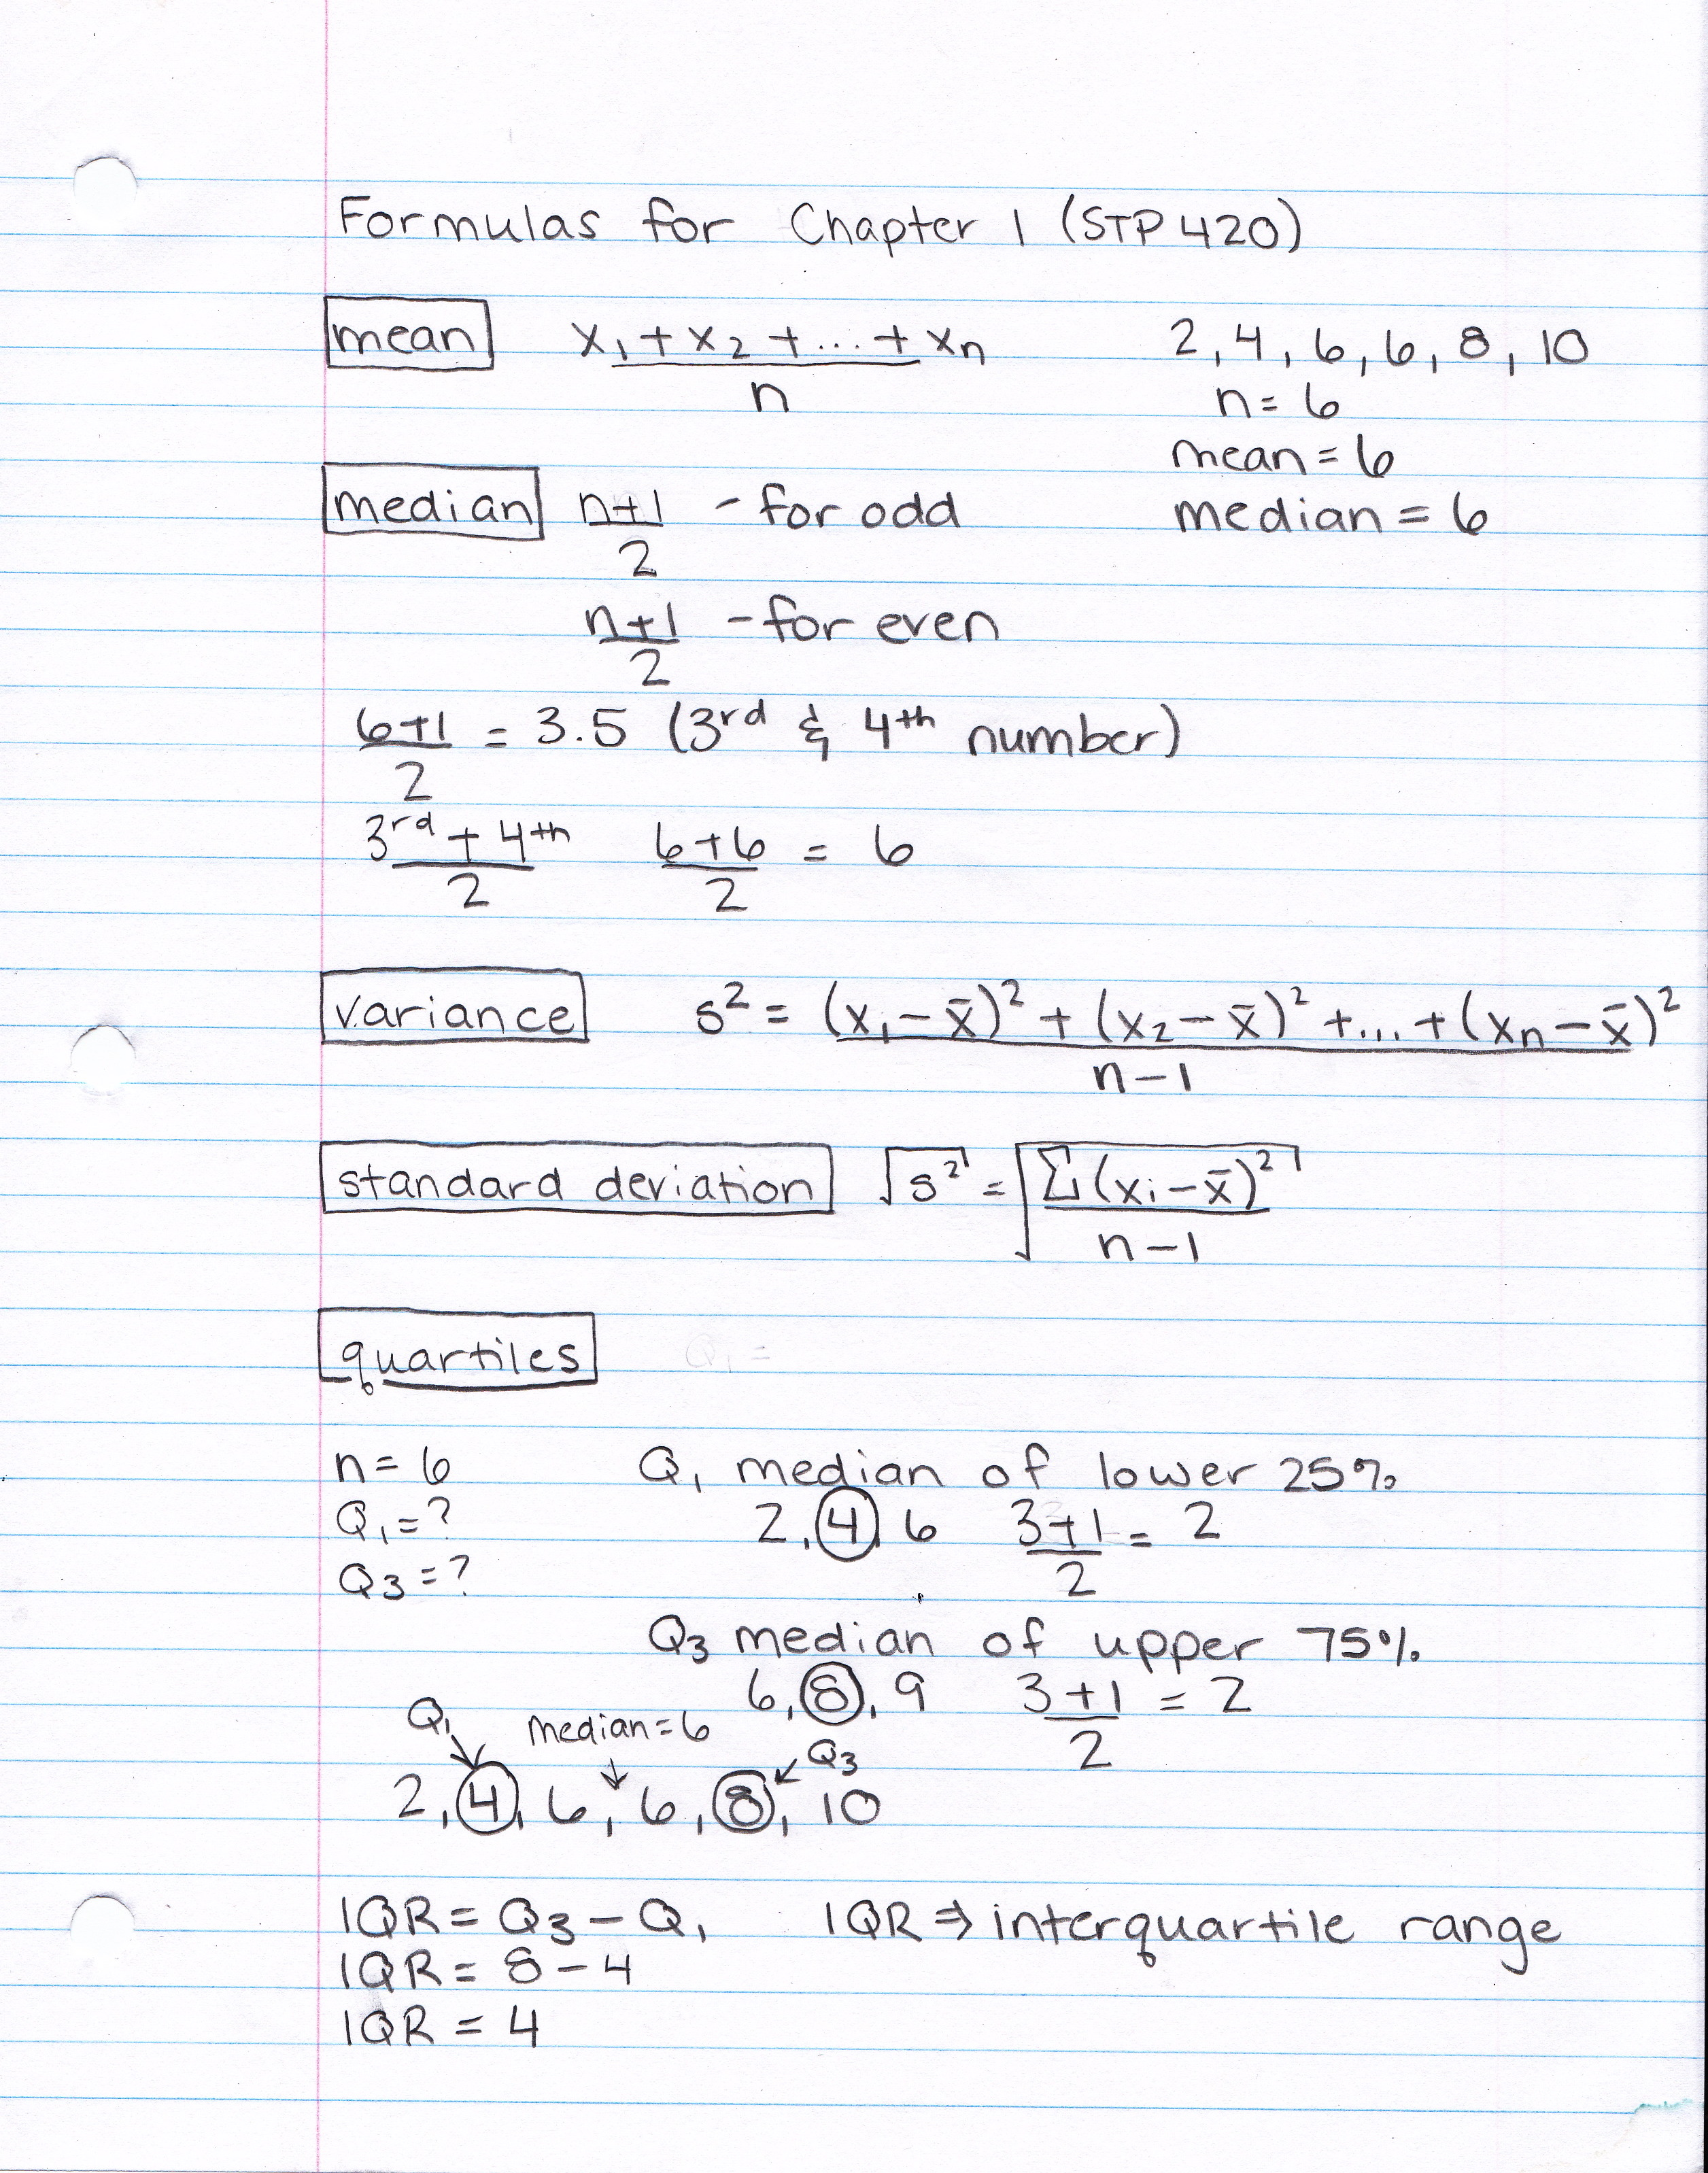 Formulas for Chapter 1 (STP 420)
mean
x₁ + x₂ + ... + xn
n
2, 4, 6, 6, 8, 10
n = 6
mean = 6
median = 6
median
n+1 - for odd
2
n+1 - for even
2
6+1 = 3.5 (3rd & 4th number)
2
3rd + 4th   6+6 = 6
2   2
variance   s² = (x₁ - x̄)² + (x₂ - x̄)² + ... + (xn - x̄)²
n - 1
standard deviation   √s² = √Σ(xi - x̄)²
n - 1
quartiles   Q₁ =
n = 6
Q₁ = ?
Q₃ = ?
Q₁ median of lower 25%
2, 4, 6   3+1 = 2
2
Q₃ median of upper 75%
6, 8, 9   3+1 = 2
2
Q₁   median = 6   Q₃
2, 4, 6, 6, 8, 10
IQR = Q₃ - Q₁   IQR ⇒ interquartile range
IQR = 8 - 4
IQR = 4